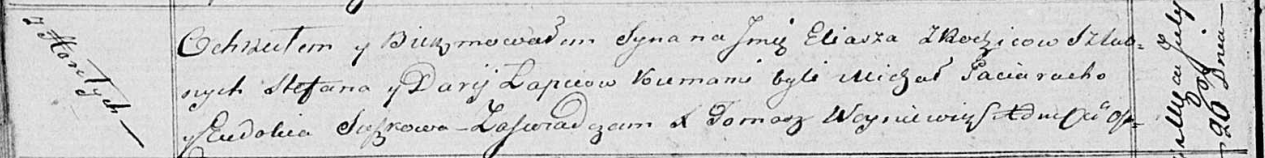 z Hortych
Ochrzciłem y Birzmowałem Syna na Jmię Eliasza z Rodzicow Szlub=
nych Stefana y Darij Łapciow Kumami byli Michał Paciaracho
y Eudokia Suszkowa – Zaświadczam X Tomasz Woyniewicz
Mca July
20 Dnia